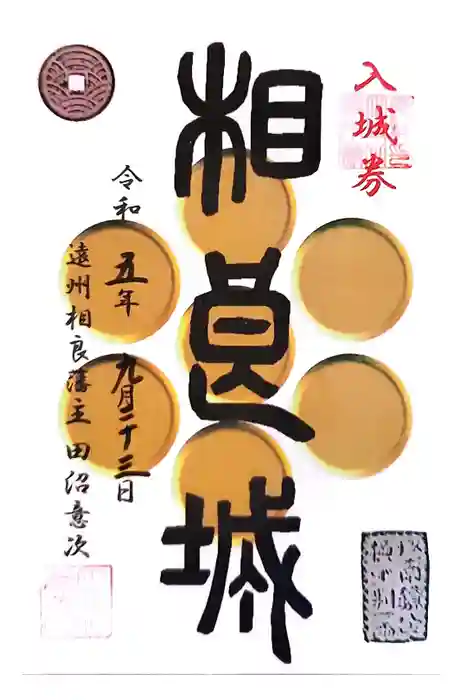 入城券
相良城
令和五年九月二十三日
遠州相良藩主田沼意次